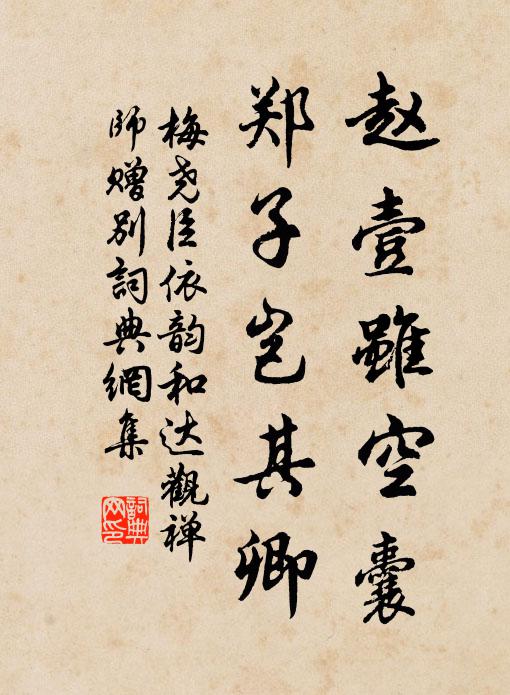 赵壹雖空囊
郑子岂其卿
梅尧臣依韵和达觀禅
師赠别詞典網集
詞典
网印